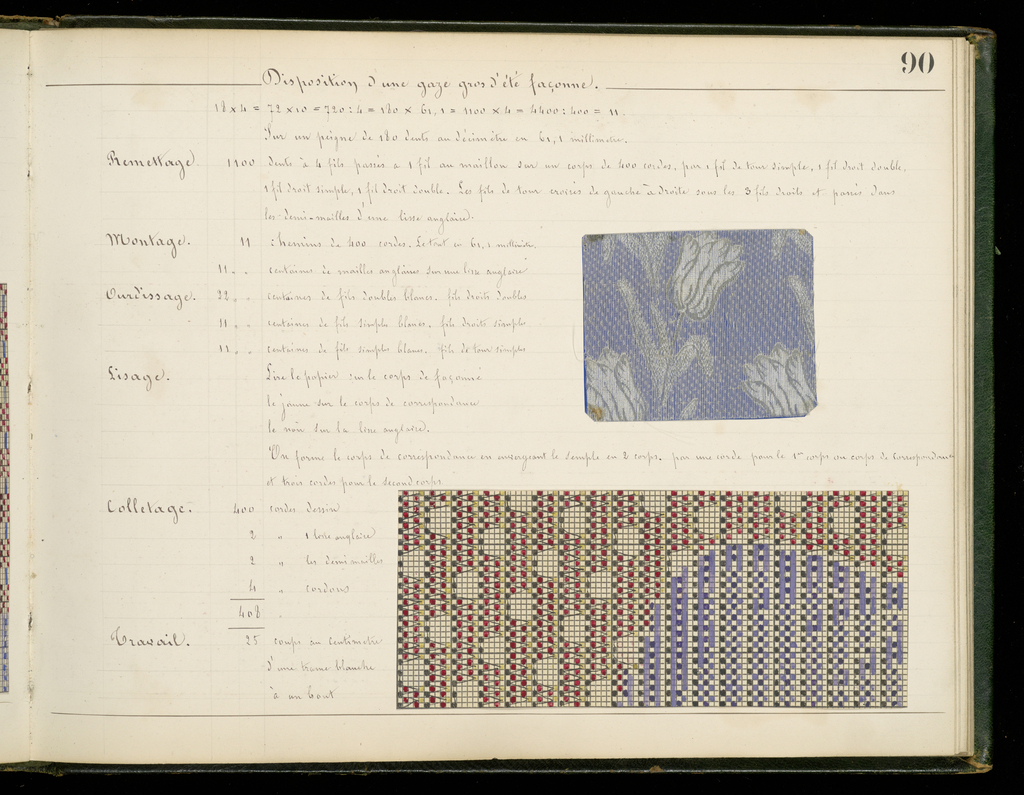 90
Disposition d'une gaze gros d'été façonné.
18 x 4 = 72 x 10 = 720 : 4 = 180 x 61,1 = 1100 x 4 = 4400 : 400 = 11.
Sur un peigne de 180 dents au décimètre en 61,1 millimètre.
Remettage. 1100 dents à 4 fils passés a 1 fil au maillon sur un corps de 400 cordes, par 1 fil de tour simple, 1 fil droit double,
1 fil droit simple, 1 fil droit double. Les fils de tour croisés de gauche à droite sous les 3 fils droits et passés dans
les demi-mailles d'une lisse anglaise.
Montage. 11 chemins de 400 cordes. Le tout en 61,1 millimètre.
11 " " centaines de mailles anglaises sur une lisse anglaise
Ourdissage. 22 " " centaines de fils doubles blancs. fils droits doubles
11 " " centaines de fils simples blancs. fils droits simples
11 " " centaines de fils simples blancs. fils de tour simples
Lisage. Lire le papier sur le corps de façonné
le jaune sur le corps de correspondance
le noir sur la lisse anglaise.
On forme le corps de correspondance en envergeant le semple en 2 corps. par une corde pour le 1er corps ou corps de correspondance
et trois cordes pour le second corps
Colletage. 400 cordes dessin
2 " 1 lisse anglaise
2 " les demi mailles
4 " cordons
408 "
Travail. 25 coups au centimètre
d'une trame blanche
à un bout